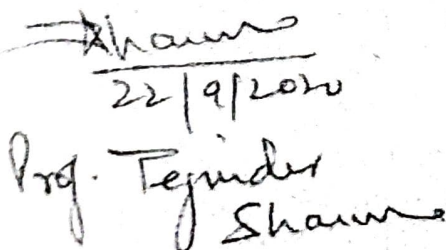 Sharma
22/9/2020
Prof. Tejinder
Sharma